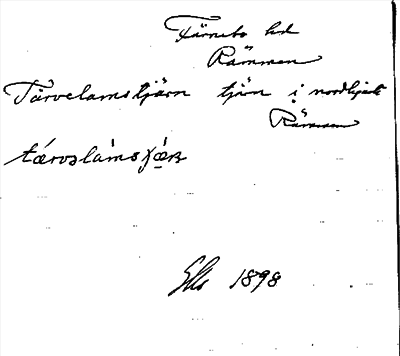 Färnebo hd
Rämmen
Tärvelamstjärn tjärn i nordligaste
Rämmen
tærvəlámsʃæ̣ṇ
1898